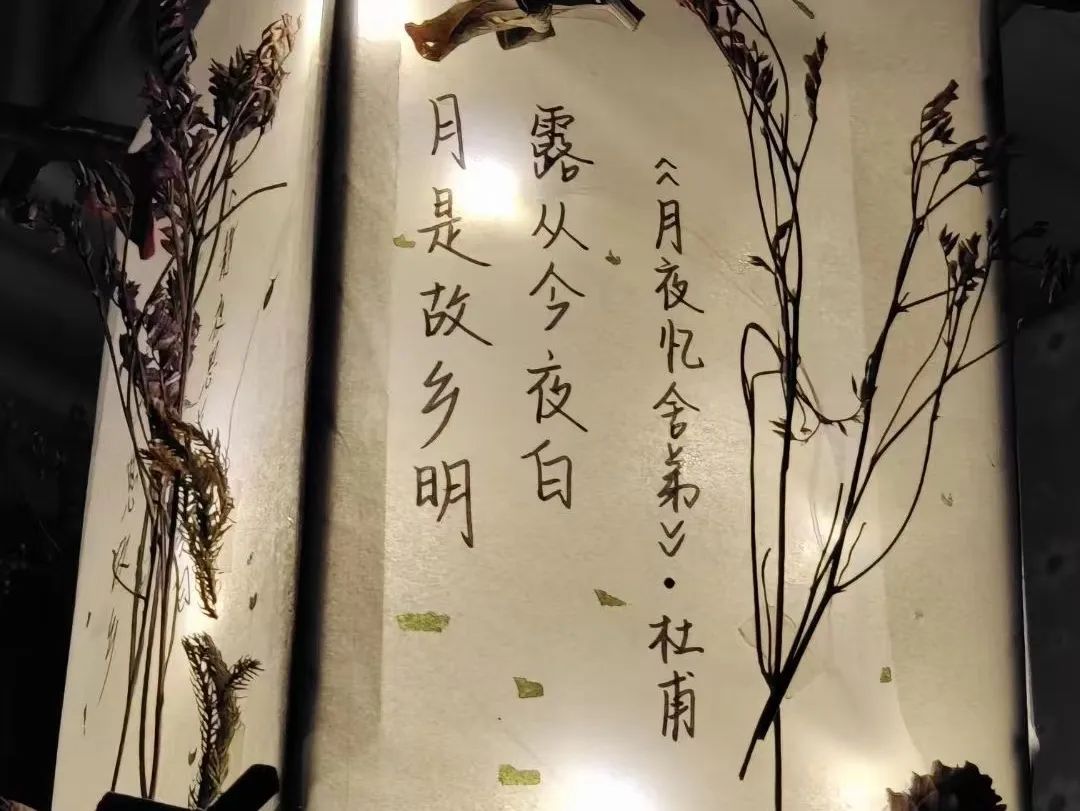 《月夜忆舍弟》·杜甫
露从今夜白
月是故乡明